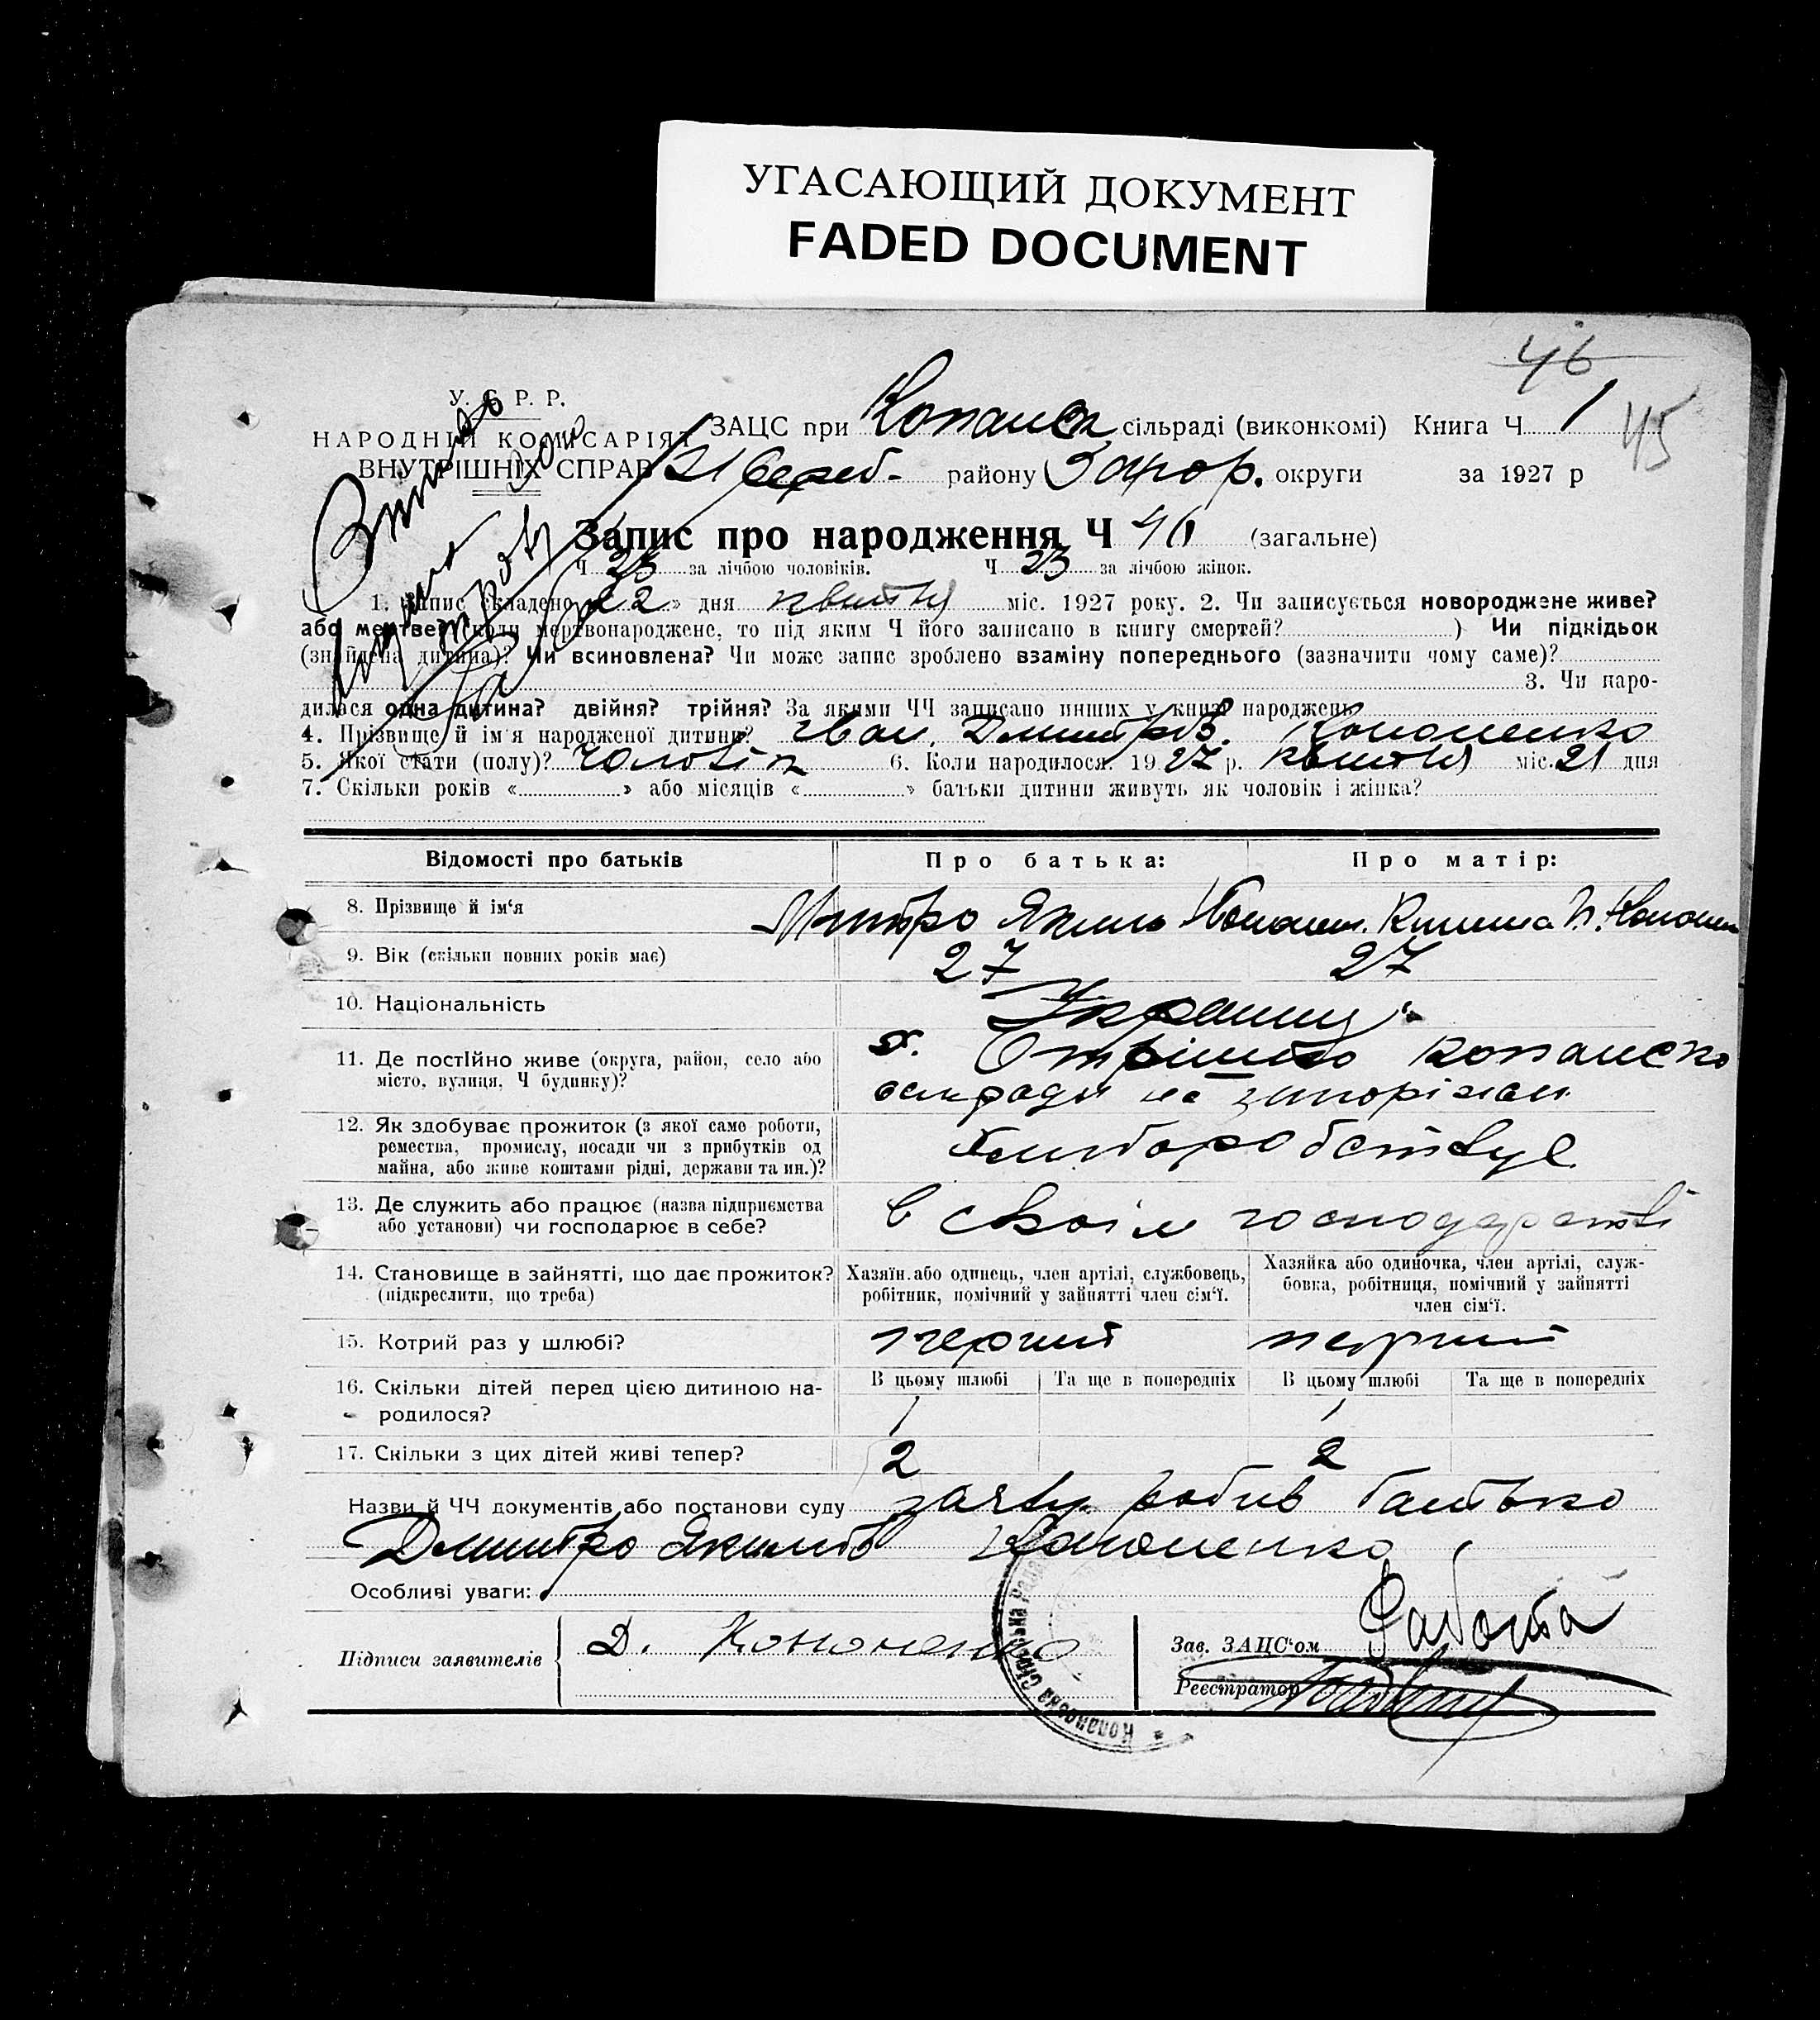 УГАСАЮЩИЙ ДОКУМЕНТ
FADED DOCUMENT
46
45
У. С. Р. Р.
НАРОДНІЙ КОМІСАРІЯТ
ВНУТРІШНІХ СПРАВ
ЗАЦС при Копанск сільраді (виконкомі) Книга Ч 1
району Запор. округи за 1927 р
Запис про народження Ч 46 (загальне)
Ч 23 за лічбою чоловіків. Ч 23 за лічбою жінок.
1. Запис складено 22 » дня квитня міс. 1927 року. 2. Чи записується новороджене живе?
або мертве? (коли мертвонароджене, то під яким Ч його записано в книгу смертей? ) Чи підкідьок
(знайдена дитина)? Чи всиновлена? Чи може запис зроблено взаміну попереднього (зазначити чому саме)?
3. Чи наро-
дилася одна дитина? двійня? трійня? За якими ЧЧ записано инших у книзі народжень
4. Прізвище й ім'я народженої дитини? Іван Дмитрів. Кононенко
5. Якої стати (полу)? Чоловік 6. Коли народилося. 1927 р. квитня міс. 21 дня
7. Скільки років « » або місяців « » батьки дитини живуть як чоловік і жінка?
Відомості про батьків Про батька: Про матір:
8. Прізвище й ім'я
9. Вік (скільки повних років має) 27 27
10. Національність
11. Де постійно живе (округа, район, село або
місто, вулиця, Ч будинку)?
12. Як здобуває прожиток (з якої само роботи,
ремества, промислу, посади чи з прибутків од
майна, або живе коштами рідні, держави та ин.)?
13. Де служить або працює (назва підприємства
або установи) чи господарює в себе?
в своїм господарстві
14. Становище в зайнятті, що дає прожиток?
(підкреслити, що треба)
Хазяїн або одинець, член артілі, службовець,
робітник, помічний у зайнятті член сім'ї.
Хазяйка або одиночка, член артілі, служ-
бовка, робітниця, помічний у зайнятті
член сім'ї.
15. Котрий раз у шлюбі? перший перший
16. Скільки дітей перед цією дитиною на-
родилося?
В цьому шлюбі Та ще в попередніх В цьому шлюбі Та ще в попередніх
1 1
17. Скільки з цих дітей живі тепер? 2 2
Назви й ЧЧ документів або постанови суду заяву робив батько
Дмитро Якимів Кононенко
Особливі уваги:
Підписи заявителів Д. Кононенко
Зав. ЗАЦС'ом
Реєстратор
Копанська Сільська Рада